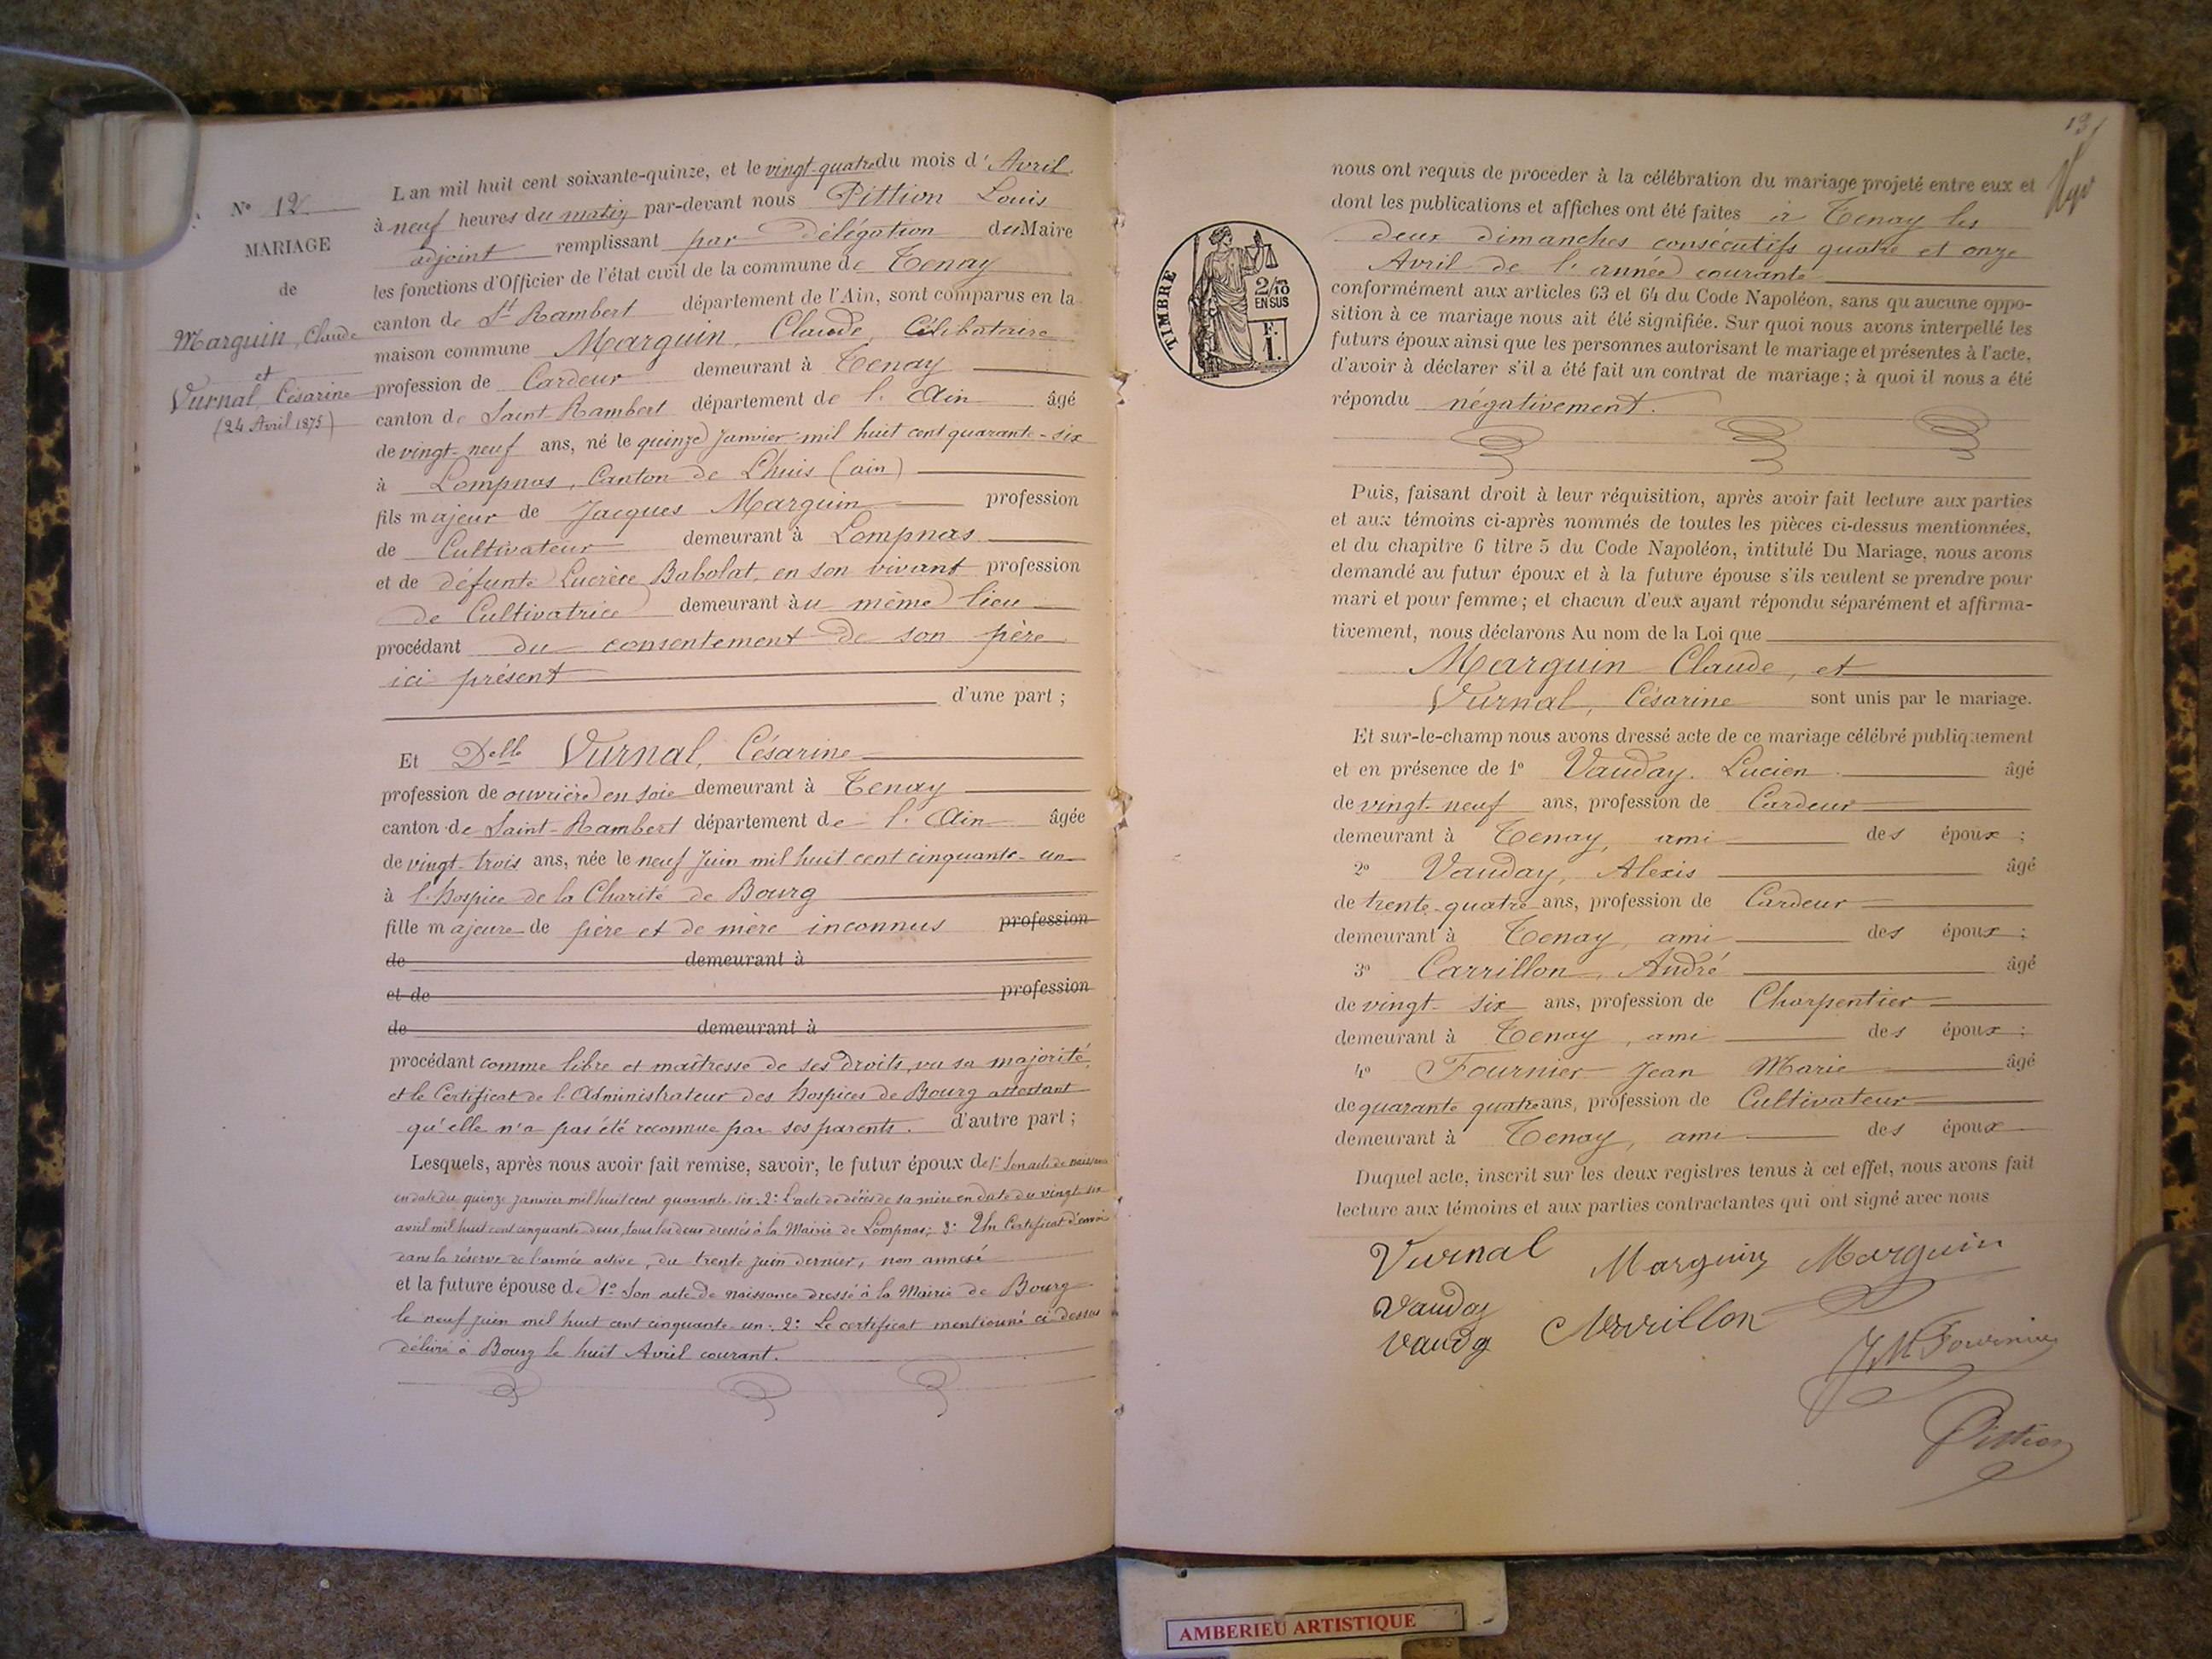 N° 12
MARIAGE
de
Marguin, Claude
et
Vurnal, Césarine
(24 Avril 1875)
L an mil huit cent soixante-quinze, et le vingt-quatre du mois d' Avril
à neuf heures du matin par-devant nous Pittion Louis
adjoint remplissant par délégation du Maire
les fonctions d'Officier de l'état civil de la commune de Tenay
canton de St Rambert département de l'Ain, sont comparus en la
maison commune Marguin, Claude, Célibataire
profession de Cardeur demeurant à Tenay
canton de Saint-Rambert département de l'Ain âgé
de vingt-neuf ans, né le quinze Janvier mil huit cent quarante-six
à Lompnas, Canton de Lhuis (ain)
fils majeur de Jacques Marguin profession
de Cultivateur demeurant à Lompnas
et de défunte Lucrèce Babolat, en son vivant profession
de Cultivatrice demeurant au même lieu
procédant du consentement de son père
ici présent
d'une part ;
Et Delle Vurnal, Césarine
profession de ouvrière en soie demeurant à Tenay
canton de Saint-Rambert département de l'Ain âgée
de vingt-trois ans, née le neuf Juin mil huit cent cinquante-un
à l'hospice de la Charité de Bourg
fille majeure de père et de mère inconnus profession
de demeurant à
et de profession
de demeurant à
procédant comme libre et maîtresse de ses droits, vu sa majorité,
et le Certificat de l'Administrateur des hospices de Bourg attestant
qu'elle n'a pas été reconnue par ses parents. d'autre part ;
Lesquels, après nous avoir fait remise, savoir, le futur époux de 1° Son acte de naissance
en date du quinze Janvier mil huit cent quarante-six; 2° L'acte de décès de sa mère en date du vingt-six
avril mil huit cent cinquante-deux, tous les deux dressés à la Mairie de Lompnas; 3° Un Certificat d'envoi
dans la réserve de l'armée active, du trente juin dernier, non annexé
et la future épouse de 1° Son acte de naissance dressé à la Mairie de Bourg
le neuf juin mil huit cent cinquante-un; 2° Le certificat mentionné ci-dessus
délivré à Bourg le huit Avril courant.
13
nous ont requis de proceder à la célébration du mariage projeté entre eux et
dont les publications et affiches ont été faites à Tenay les
deux dimanches consécutifs quatre et onze
Avril de l'année courante
conformément aux articles 63 et 64 du Code Napoléon, sans qu aucune oppo-
sition à ce mariage nous ait été signifiée. Sur quoi nous avons interpellé les
futurs époux ainsi que les personnes autorisant le mariage et présentes à l'acte,
d'avoir à déclarer s'il a été fait un contrat de mariage ; à quoi il nous a été
répondu négativement.
TIMBRE
2/10
EN SUS
F.
1.
Puis, faisant droit à leur réquisition, après avoir fait lecture aux parties
et aux témoins ci-après nommés de toutes les pièces ci-dessus mentionnées,
et du chapitre 6 titre 5 du Code Napoléon, intitulé Du Mariage, nous avons
demandé au futur époux et à la future épouse s'ils veulent se prendre pour
mari et pour femme ; et chacun d'eux ayant répondu séparément et affirma-
tivement, nous déclarons Au nom de la Loi que
Marguin Claude, et
Vurnal, Césarine sont unis par le mariage.
Et sur-le-champ nous avons dressé acte de ce mariage célébré publiquement
et en présence de 1° Vauday, Lucien âgé
de vingt-neuf ans, profession de Cardeur
demeurant à Tenay, ami des époux ;
2° Vauday, Alexis âgé
de trente-quatre ans, profession de Cardeur
demeurant à Tenay, ami des époux ;
3° Carrillon, André âgé
de vingt-six ans, profession de Charpentier
demeurant à Tenay, ami des époux ;
4° Fournier Jean Marie âgé
de quarante quatre ans, profession de Cultivateur
demeurant à Tenay, ami des époux
Duquel acte, inscrit sur les deux registres tenus à cet effet, nous avons fait
lecture aux témoins et aux parties contractantes qui ont signé avec nous
Vurnal Marguin Marguin
Vauday
Vaudy
JM Fournier
Pittion
AMBERIEU ARTISTIQUE